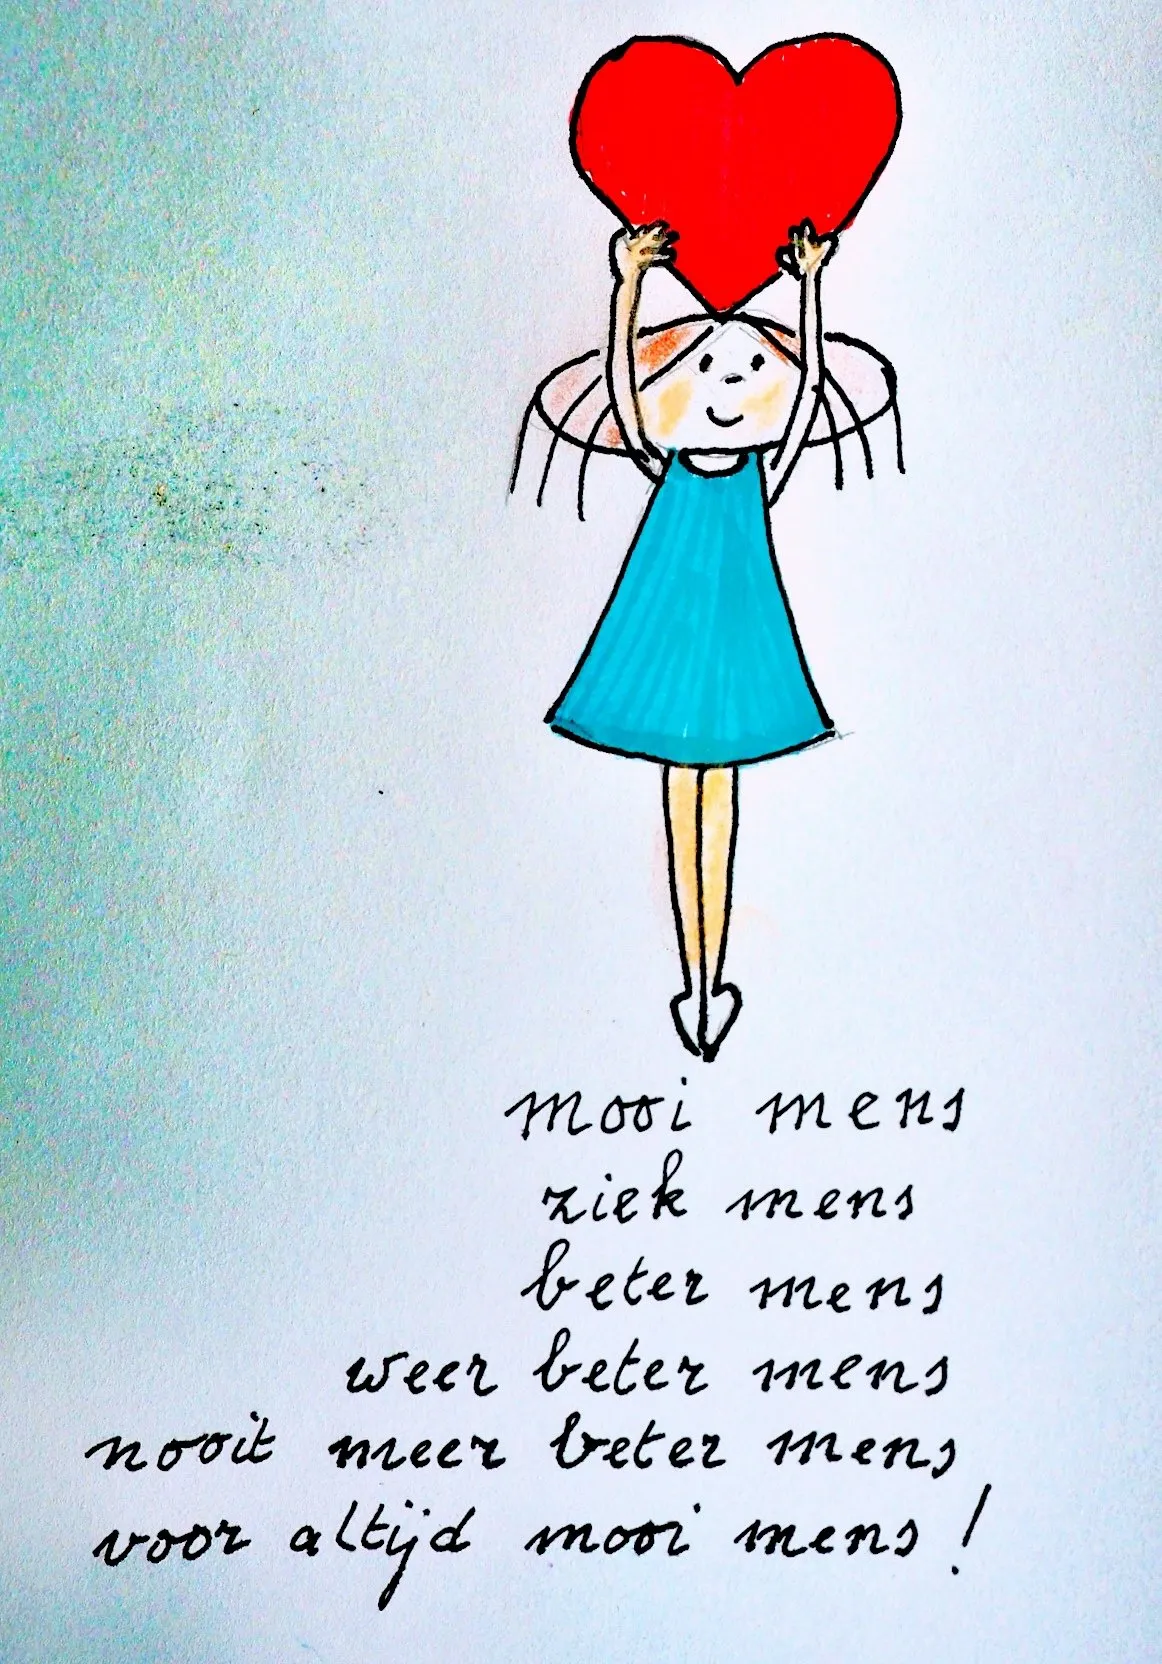 mooi mens
ziek mens
beter mens
weer beter mens
nooit meer beter mens
voor altijd mooi mens!